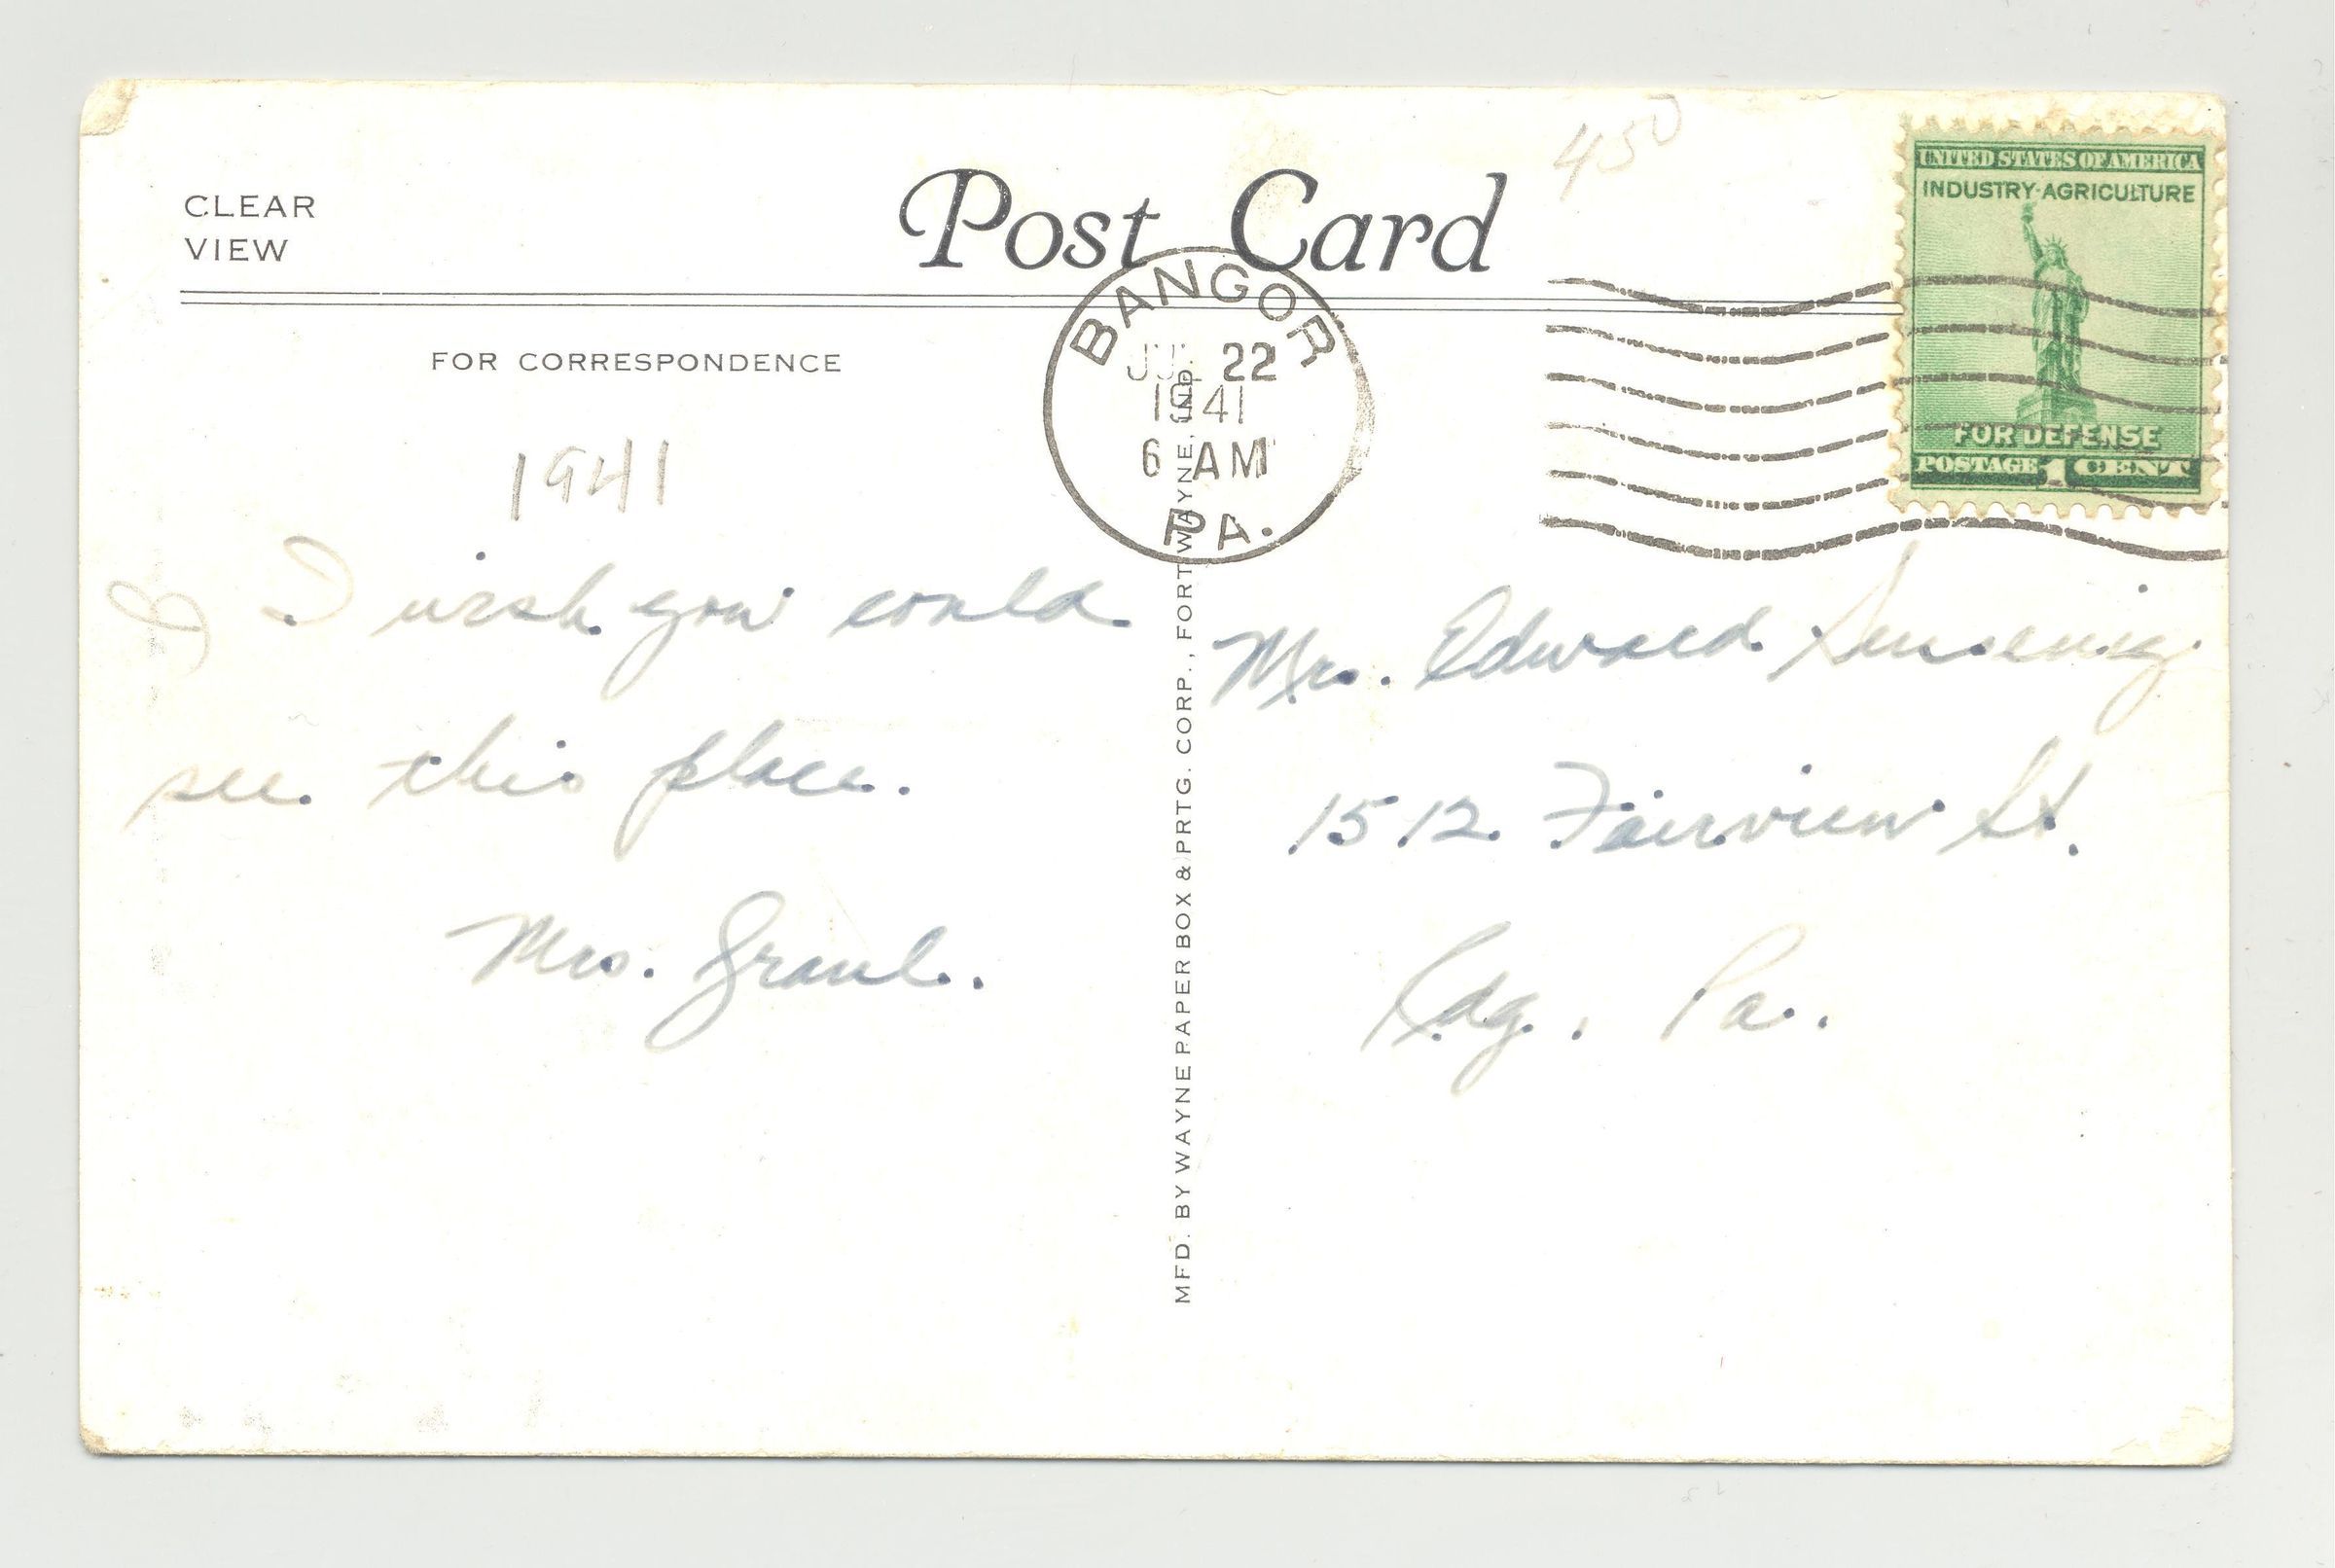 CLEAR
VIEW
Post Card
450
UNITED STATES OF AMERICA
INDUSTRY·AGRICULTURE
FOR DEFENSE
POSTAGE 1 CENT
BANGOR
22
1941
6 AM
PA.
FOR CORRESPONDENCE
1941
I wish you could
see this place.
Mrs. Graul.
MFD. BY WAYNE PAPER BOX & PRTG. CORP., FORT WAYNE, IND.
Mrs. Edward Sensenig
1512 Fairview St.
Rdg. Pa.